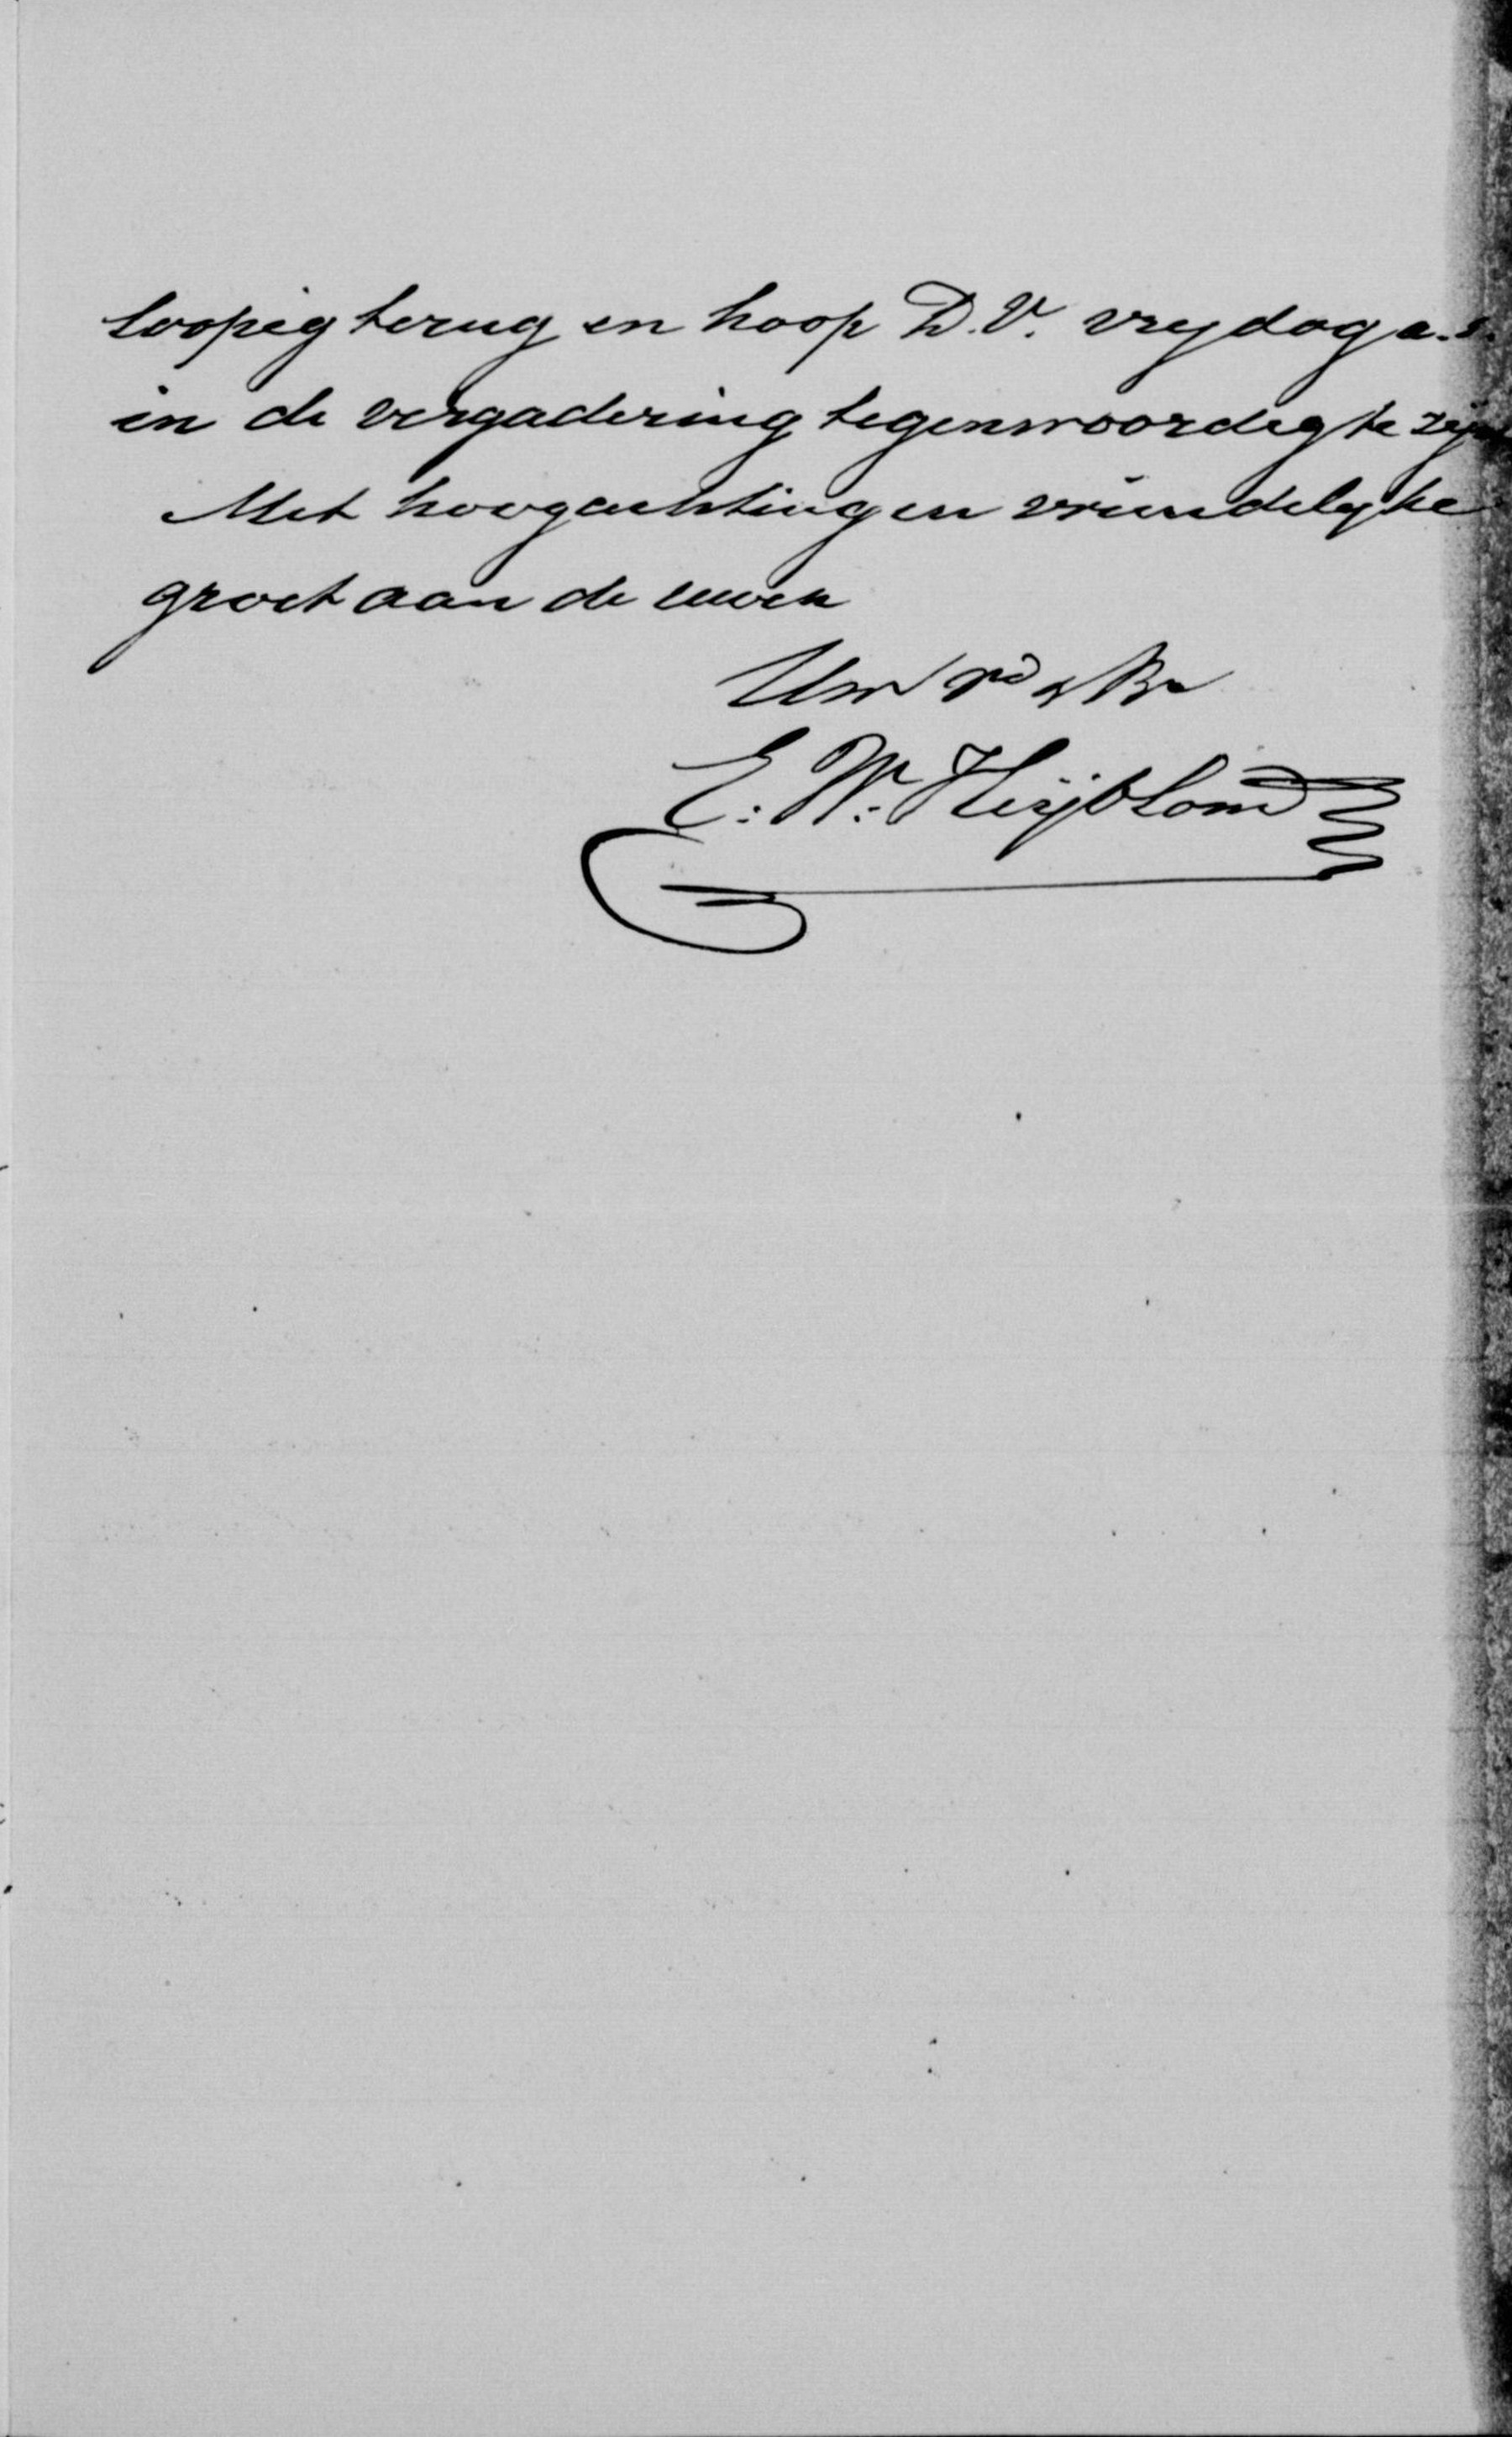 loopig terug en hoop D.V. vrydag a.s.
in de vergadering tegenwoordig te zijn
Met hoogachting en vriendelyke
groet aan de uwen
Uw
E. W. Heijblom